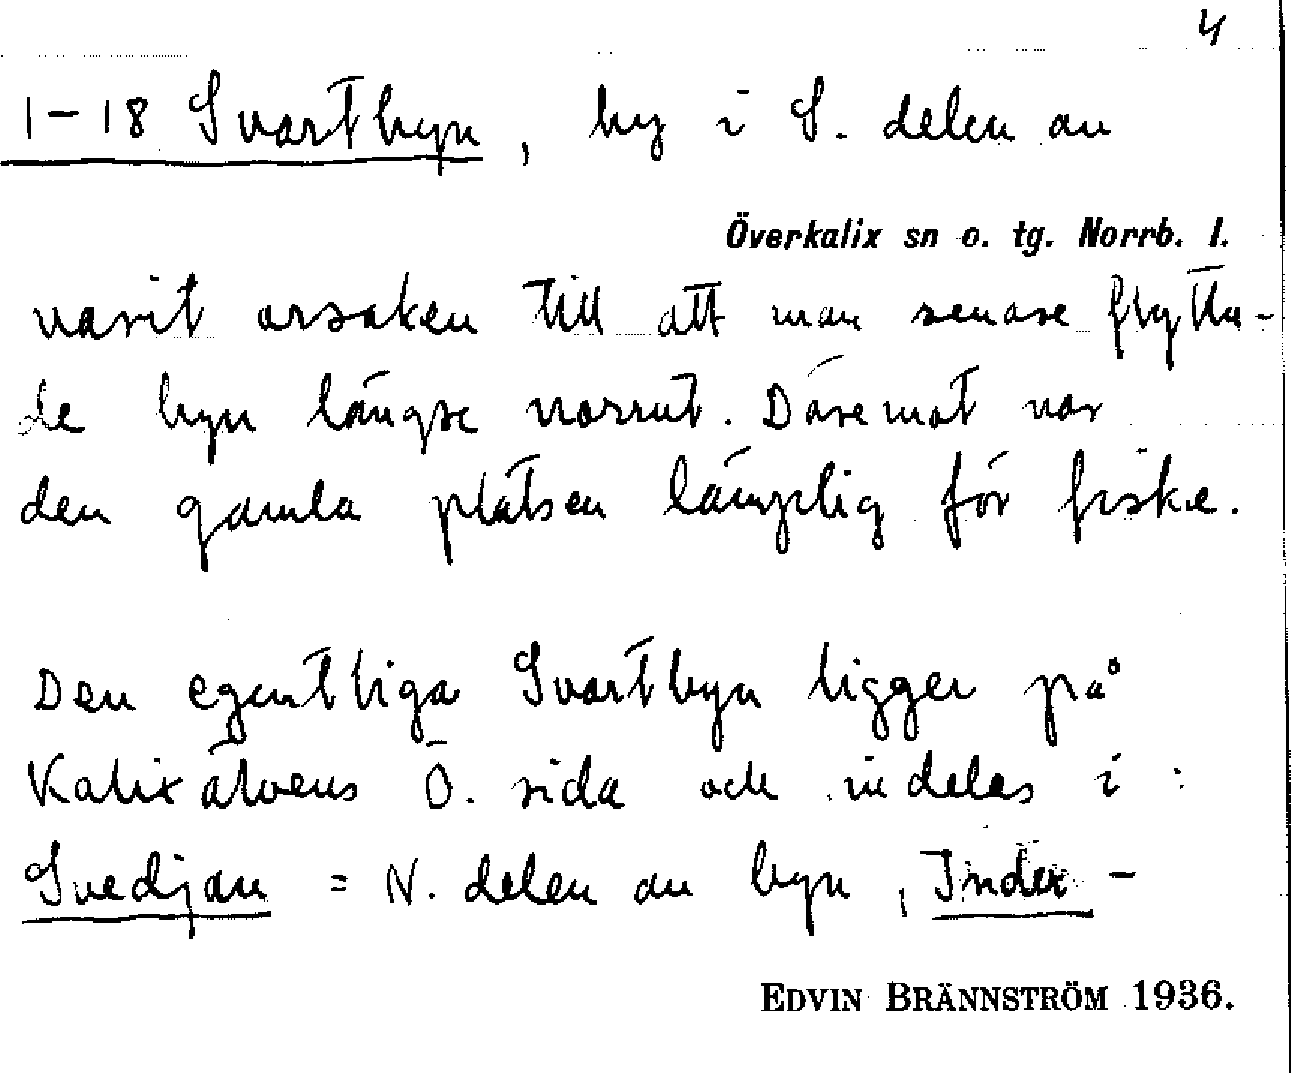 4
1-18 Svartbyn, by i S. delen av
Överkalix sn o. tg. Norrb. l.
varit orsaken till att man senare flytta-
de byn längre norrut. Däremot var
den gamla platsen lämplig för fiske.
Den egentliga Svartbyn ligger på
Kalixälvens Ö. sida och indelas i :
Svedjan = N. delen av byn, Inder-
EDVIN BRÄNNSTRÖM 1936.